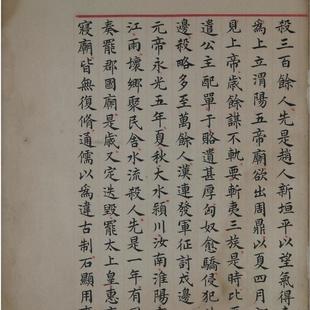 殺三百餘人先是趙人新垣平以望氣得
為上立渭陽五帝廟欲出周鼎以夏四月
見上帝歲餘謀不軌要斬夷三族是時比
遺公主配單于賂遺甚厚匈奴愈驕侵犯
邊殺略多至萬餘人漢連發軍征討戍邊
元帝永光五年夏秋大水潁川汝南淮陽
江雨壞鄉聚民舍水流殺人先是一年有
奏罷郡國廟是歲又定迭毀罷太上皇惠
寢廟皆無復脩通儒以為違古制石顯用